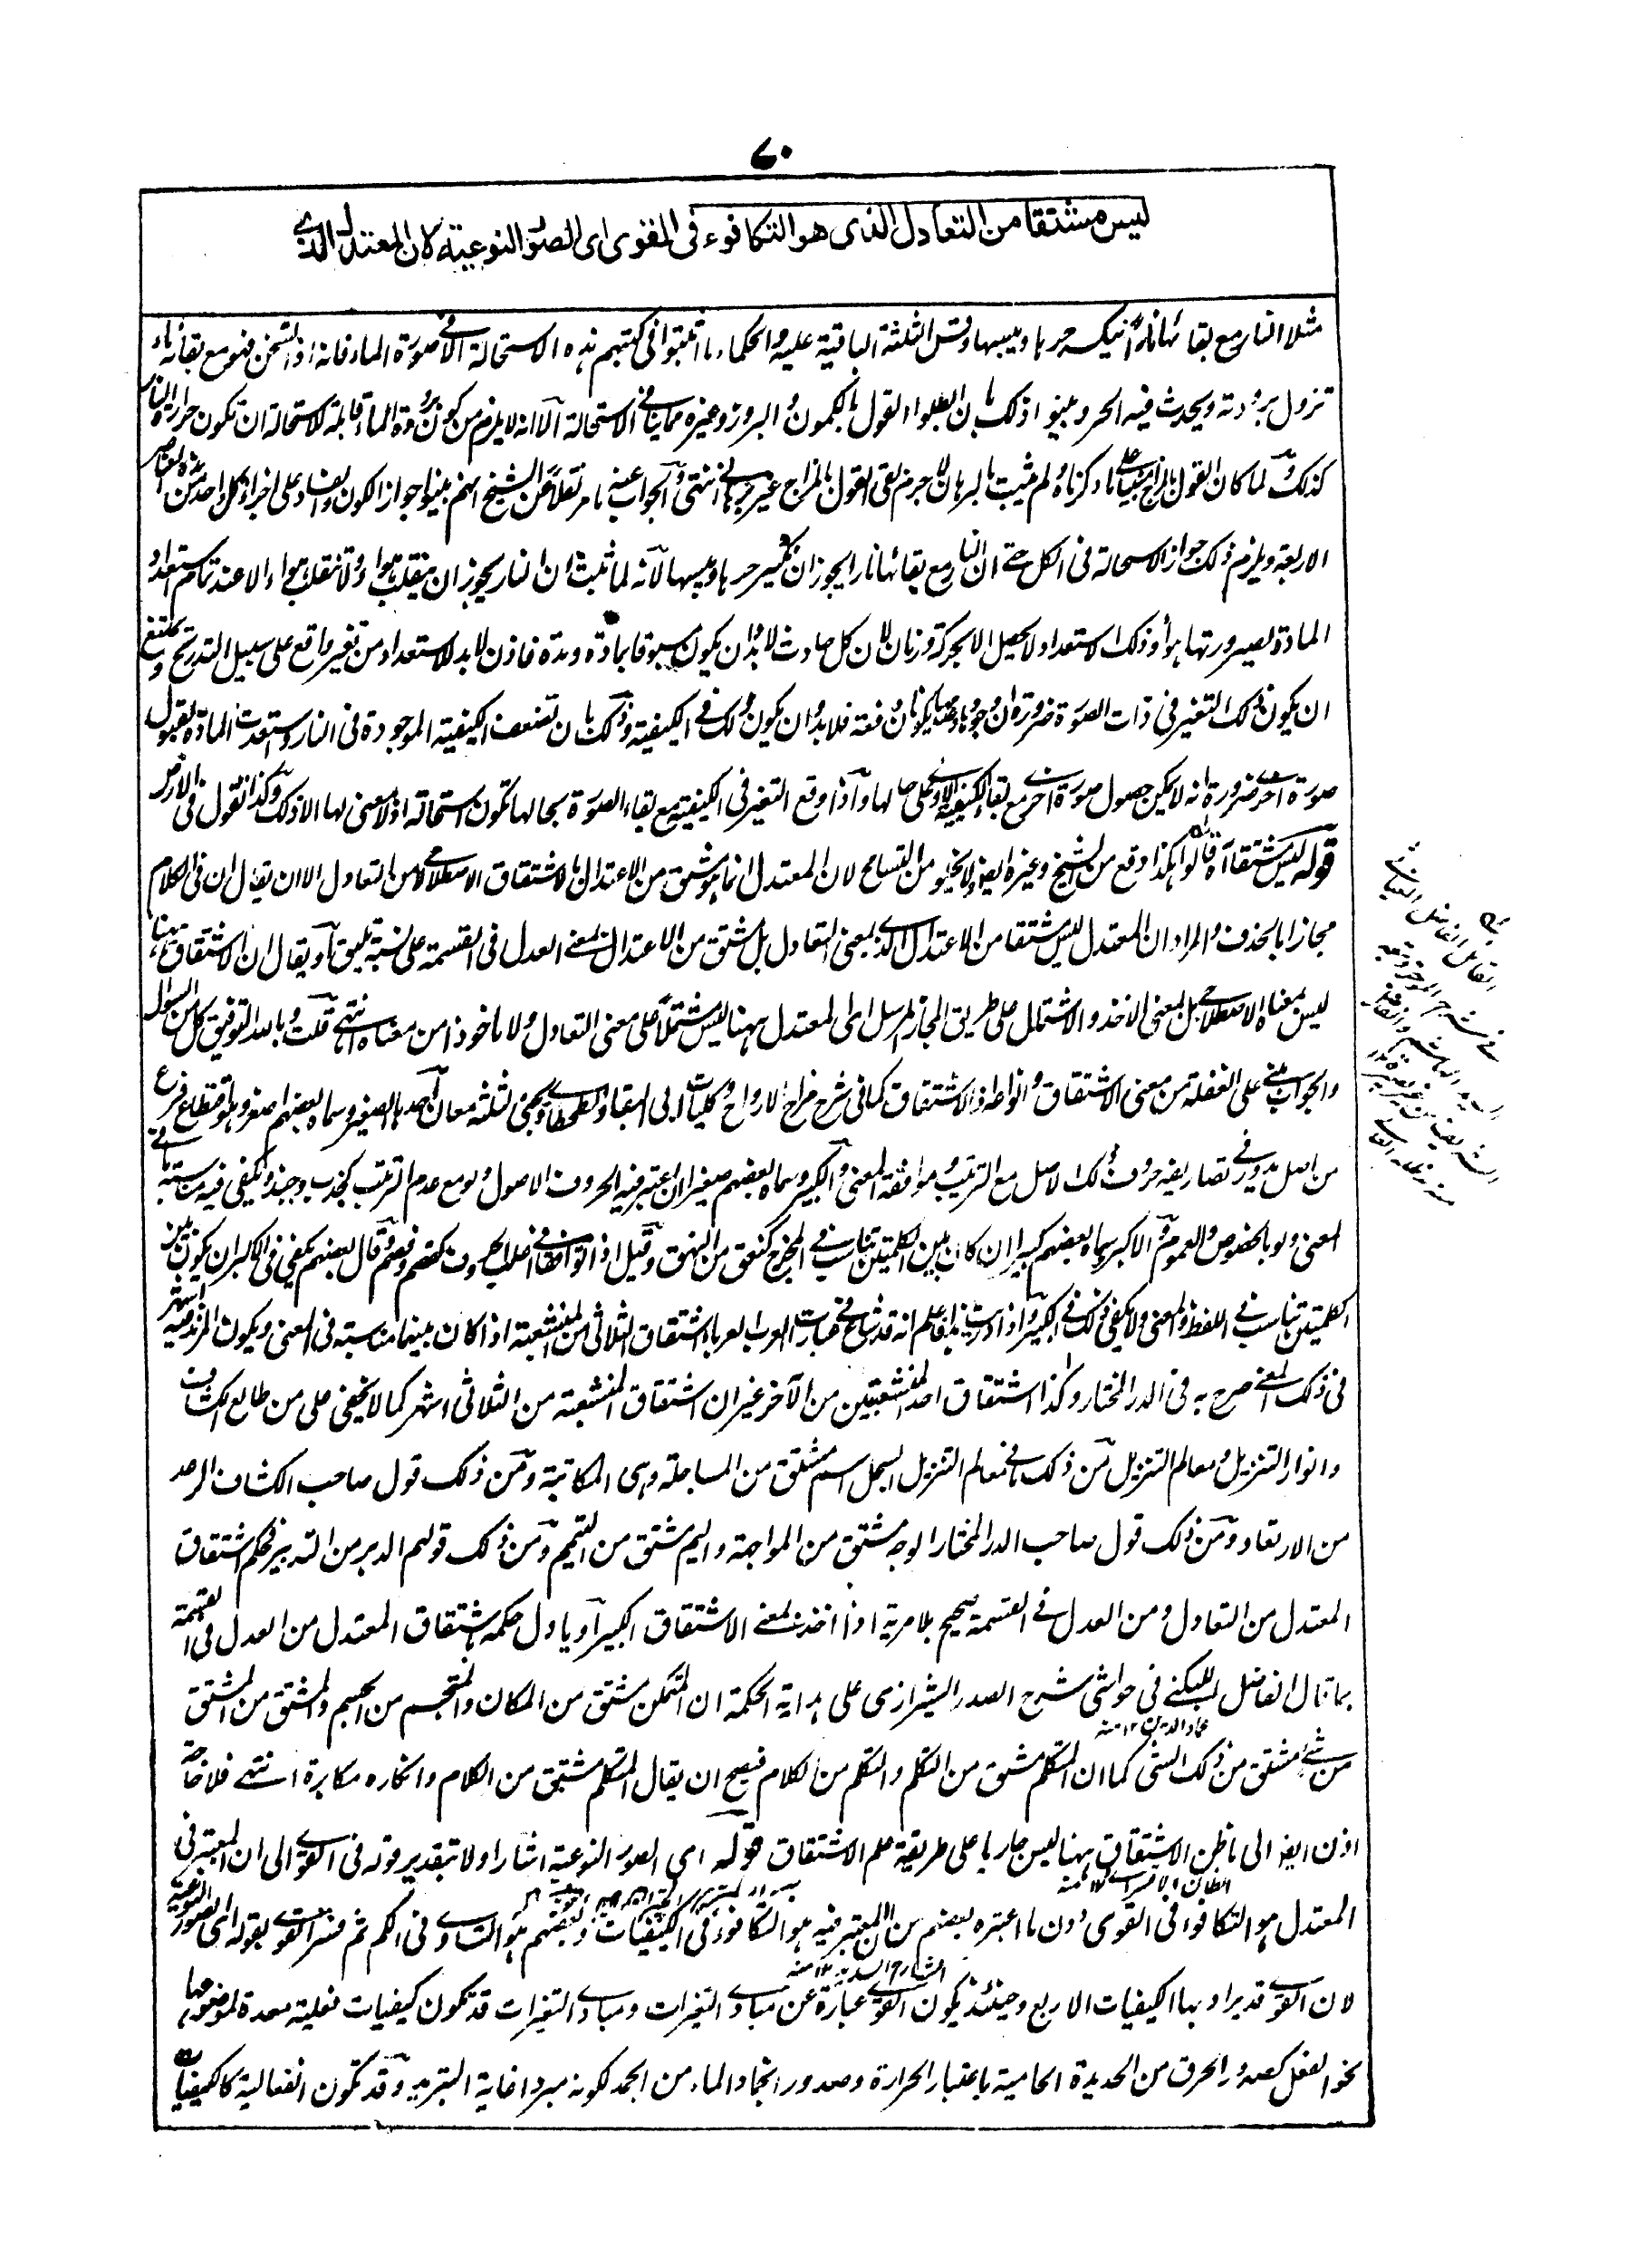 ٧٠
ليس مشتقا من التعادل الذى هو التكافوء فى القوى اى الصور النوعية لان المعتدل الذى
مثلا النار مع بقائها نارا ينكسر حرها ويبسها وقس الثلثة الباقية عليه والحكماء ما اثبتوا فى كتبهم هذه الاستحالة الا فى صورة الماء فانه اذا تسخن فهو مع بقائه ماء
تزول برودته ويحدث فيه الحر وبينوا ذلك بان ابطلوا القول بالكمون والبروز وغيره مما ينافى الاستحالة الا انه لا يلزم من كون برودة الماء قابلة للاستحالة ان تكون حرارة النار
كذلك لما كان القول بالمزاج مبنيا على ما ذكرناه ولم يثبت بالبرهان لا جرم بقى القول بالمزاج غير برهانى انتهى والجواب عنه ما مر نقلا عن الشيخ انهم بينوا جواز الكون والفساد على اجزاء كل واحد من هذه العناصر
الاربعة ويلزم ذلك جواز الاستحالة فى الكل حتى ان النار مع بقائها نارا يجوز ان ينكسر حرها ويبسها لانه لما ثبت ان النار يجوز ان ينقلب هواء ولا تنقلب هواء الا عند تمام استعداد
المادة لصيرورتها هواء وذلك الاستعداد لا يحصل الا بحركة وزمان لان كل حادث لا بد ان يكون مسبوقا بمادة ومدة فاذن لا بد للاستعداد من تغير واقع على سبيل التدريج ويمتنع
ان يكون ذلك التغير فى ذات الصورة ضرورة ان وجودها وعدمها يكونان دفعة فلا بد ان يكون ذلك فى الكيفية وذلك بان تضعف الكيفية الموجودة فى النار واستعدت المادة لقبول
صورة اخرى ضرورة انه لا يمكن حصول صورة اخرى مع بقاء الكيفية الاولى على حالها واذا وقع التغير فى الكيفية مع بقاء الصورة بحالها تكون استحالة اذ لا معنى لها الا ذلك وكذا نقول فى الارض
قوله ليس مشتقا اه قالوا هكذا وقع من الشيخ وغيره ايضا ولا يخلو من التسامح لان المعتدل انما هو مشتق من الاعتدال بالاشتقاق الاصطلاحى لا من التعادل الا ان يقال ان فى الكلام
مجازا بالحذف والمراد ان المعتدل ليس مشتقا من الاعتدال الذى بمعنى التعادل بل مشتق من الاعتدال بمعنى العدل فى القسمة على نسبة تليق او يقال ان الاشتقاق ههنا
ليس بمعناه الاصطلاحى بل بمعنى الاخذ والاشتمال على طريق المجاز المرسل اى المعتدل ههنا ليس مشتملا على معنى التعادل ولا ماخوذا من معناه انتهى قلت وبالله التوفيق كل من السوال
والجواب مبنى على الغفلة من معنى الاشتقاق وانواعه اذ الاشتقاق كما فى شرح مراح الارواح وكليات ابى البقاء والطحطاوى يجئ لثلثة معان احدها الصغير وسماه بعضهم اصغر وهو اقتطاع فرع
من اصل يدور فى تصاريفه حروف ذلك الاصل مع الترتيب وموافقة المعنى والكبير وسماه بعضهم صغيرا ان اعتبر فيه الحروف الاصول ولو مع عدم الترتيب كجذب وجبذ ويكفى فيه مناسبة
المعنى ولو بالخصوص والعموم والاكبر سماه بعضهم كبيرا ان كان بين الكلمتين تناسب فى المخرج كنعق من النهق وقيل اذا توافقا فى اغلب الحروف كقضم وفصم وقال بعضهم يكفى فى الاكبر ان يكون بين
الكلمتين تناسب فى اللفظ والمعنى ولا يكفى ذلك فى الكبير اذا دريت هذا فاعلم انه قد شاع فى عبارات العرب العرباء اشتقاق الثلاثى من المنشعبة اذا كان بينهما مناسبة فى المعنى ويكون المزيد فيه اشهر
فى ذلك المعنى صرح به فى الدر المختار وكذا اشتقاق احد المنشعبتين من الآخر غير ان اشتقاق المنشعبة من الثلاثى اشهر كما لا يخفى على من طالع الكشاف
وانوار التنزيل ومعالم التنزيل من ذلك ما فى معالم التنزيل السجل اسم مشتق من المساجلة وهى المكاتبة ومن ذلك قول صاحب الكشاف الرعد
من الارتعاد ومن ذلك قول صاحب الدر المختار الوجه مشتق من المواجهة واليم مشتق من التيمم ومن ذلك قولهم الدبر من التدبير فحكم اشتقاق
المعتدل من التعادل ومن العدل فى القسمة صحيح بلا مرية اذا اخذت بمعنى الاشتقاق الكبير او ياول حكمه باشتقاق المعتدل من العدل فى القسمة
بما قال الفاضل اللبكنى فى حواشى شرح الصدر الشيرازى على هداية الحكمة ان المتمكن مشتق من المكان والمتجسم من الجسم والمشتق من المشتق
عماد الدين ١٢ منه
من شئ مشتق من ذلك الشئ كما ان المتكلم مشتق من التكلم والتكلم من الكلام فيصح ان يقال المتكلم مشتق من الكلام وانكاره مكابرة انتهى فلا حاجة
اذن ايضا الى ما ظن الاشتقاق ههنا ليس جاريا على طريقة علم الاشتقاق قوله اى الصور النوعية اشار اولا بتقدير قوله فى القوى الى ان المعتبر فى
المعتدل هو التكافوء فى القوى دون ما اعتبره بعضهم من ان المعتبر فيه هو التكافوء فى الكيفيات وبعضهم هو التساوى فى الكم ثم فسر القوى بقوله اى الصور النوعية
الشارح السديدى ١٢ منه
لان القوى قد يراد بها الكيفيات الاربع وحينئذ يكون القوى عبارة عن مبادى التغيرات ومبادى التغيرات قد تكون كيفيات فعلية معدة لموضوعها
نحو الفعل كصدور الحرق من الحديدة الحامية باعتبار الحرارة وصدور انجماد الماء من الجمد لكونه مبردا غاية التبريد وقد تكون انفعالية كالكيفيات